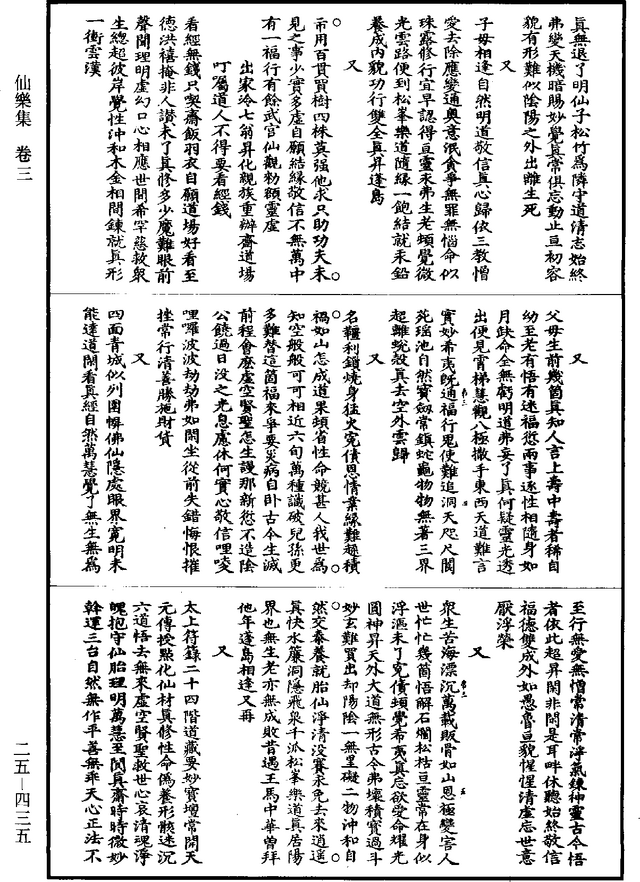 仙樂集 卷三
二五—四三五
眞無退了明仙子松竹爲隣守道清志始終
弗變天機暗賜妙覺眞常俱忘動止亘初容
貌有形難似陰陽之外出離生死
又
子母相逢自然明道敬信眞心歸依三教憎
愛去除應變通奧意泯貪爭無罪無惱命似
珠露修行宜早認得亘靈永弗生老頓覺微
光雲路便到松峯樂道隨緣一飽結就汞鉛
養成內貌功行雙全眞昇蓬島
又
帀用百貫買樹四株莫強他求只助功夫未
見之事少實多虛自願結緣敬信不無萬中
有一福行有餘武官仙觀勑額靈虛
出家冷七翁昇化親族重辦齋道場
叮囑道人不得要看經錢
看經無錢只喫齋飯羽衣自願道場好看至
德洪禧掩非人讃未了眞修多少魔難眼前
聲聞理明虛幻口心相應世間希罕慈救衆
生總超彼岸覺性沖和木金相間鍊就眞形
一衝雲漢
又
父母生前幾箇眞知人言上壽中壽者稀自
幼至老有悟有迷福愆兩事逐性相隨身如
月缺命全無虧明道弗妄了眞何疑靈光透
出便見霄梯慧觀八極撒手東西天道難言
實妙希夷旣通福行鬼使難追洞天咫尺閬
苑瑶池自然寶劔常鎮蛇龜物物無著三界
超離蛻殼眞去空外雲歸
又
名韁利鎖燒身猛火寃債恩情業緣難趓積
禍如山怎成道果頻省性命競甚人我世爲
知空般般可可相近六旬萬種識破兒孫更
多難替這箇福來爭要災病自卧古今生滅
前程會麽虛空賢聖怎生謾那新愆不造陰
公饒過日没之光息慮休何實心敬信哩㖫
哩囉波波劫劫弗如閑坐從前失錯悔恨摧
挫常行清善勝施財貨
又
四面青城似列圍幈佛仙隱處眼界寬明未
能達道閑看眞經自然萬慧覺了無生無爲
至行無愛無憎常清常淨氣鍊神靈古今悟
者依此超昇閑非問是耳畔休聽始終敬信
福德雙成外如愚魯亘貌惺惺清虛忘世意
厭浮榮
又
衆生苦海漂沉萬載販骨如山恩極變害人
世忙忙幾箇悟解石爛松枯亘靈常在身似
浮漚未了寃債頓覺希夷眞忘欲愛命耀光
圓神昇天外大道無形古今弗壞積寶過斗
妙玄難買出却陽陰一無罣礙二物沖和自
然交泰養就胎仙淨清没賽永免去來逍遥
眞快水簾洞隱飛泉千派松峯樂道眞居陽
界也無生老亦無成敗昔遇王馬中華曾拜
他年蓬島相逢又再
又
太上符籙二十四階道藏要妙寶壇常開天
元傳授點化仙材眞修性命僞養形骸迷沉
六道悟去無來虛空賢聖救世心哀清魂淨
魄抱守仙胎理明萬慧至閑眞齋時時微妙
斡運三台自然無作平善無乖天心正法不